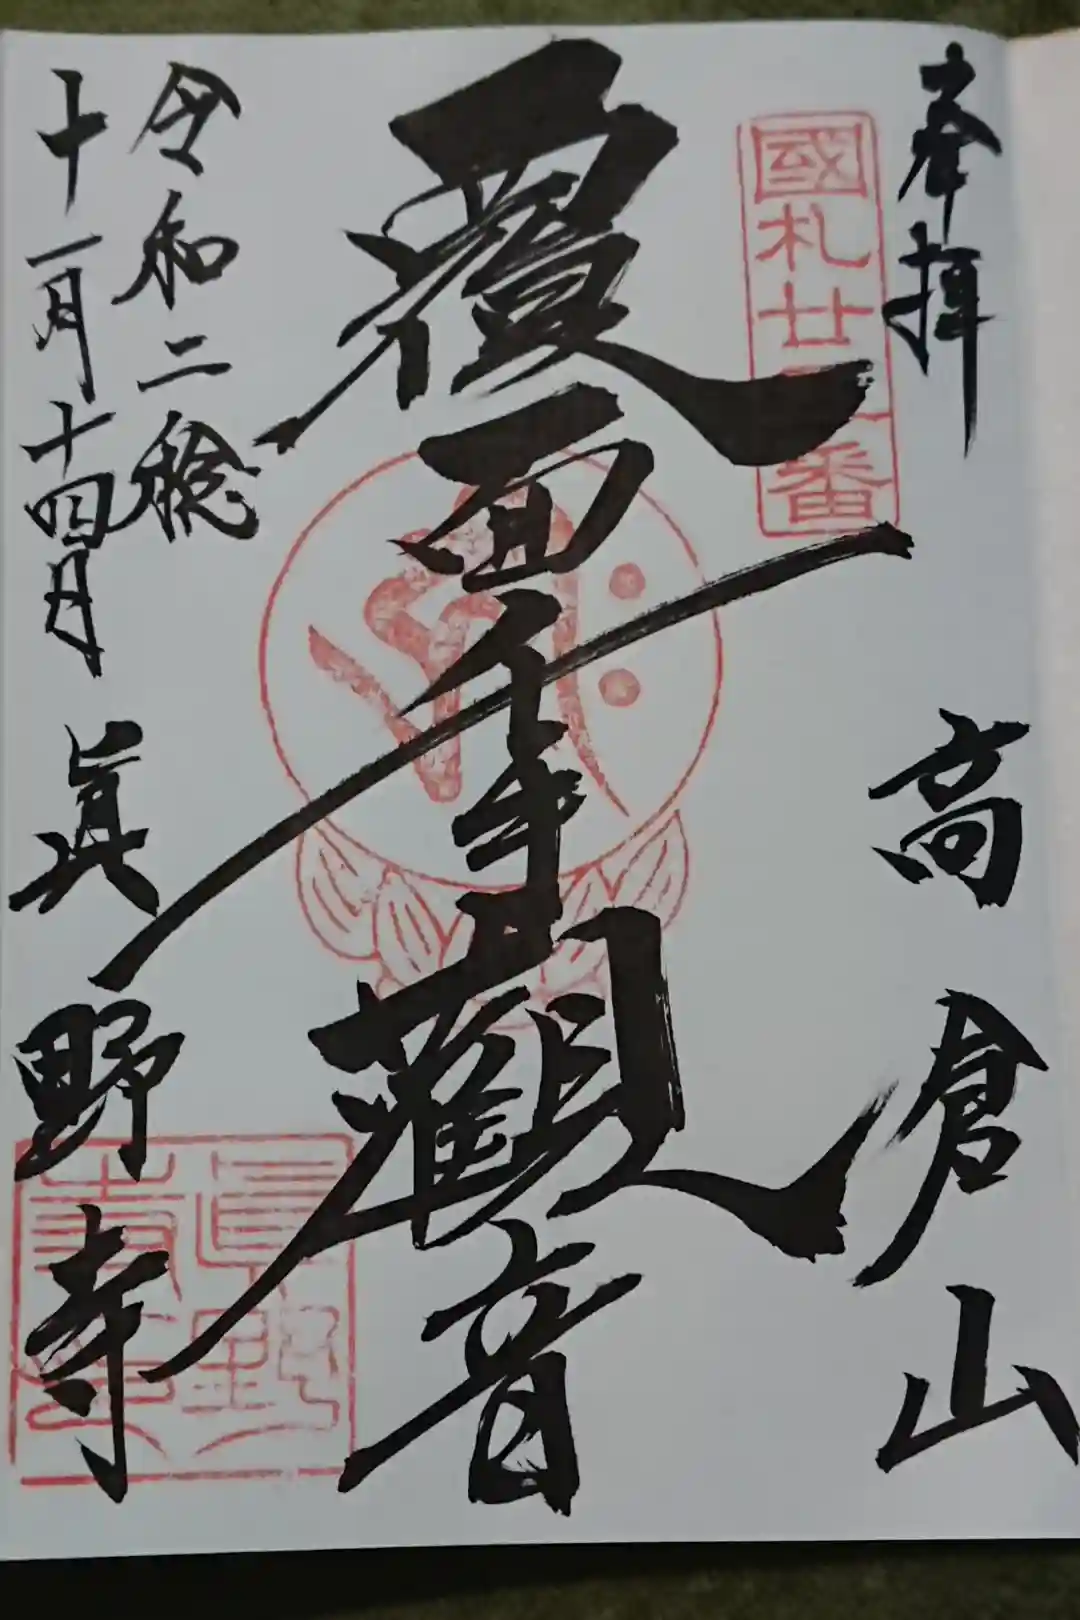 奉拝
高倉山
國札廿五番
覆面千手觀音
令和二稔
十一月十四日
眞野寺
眞野寺印